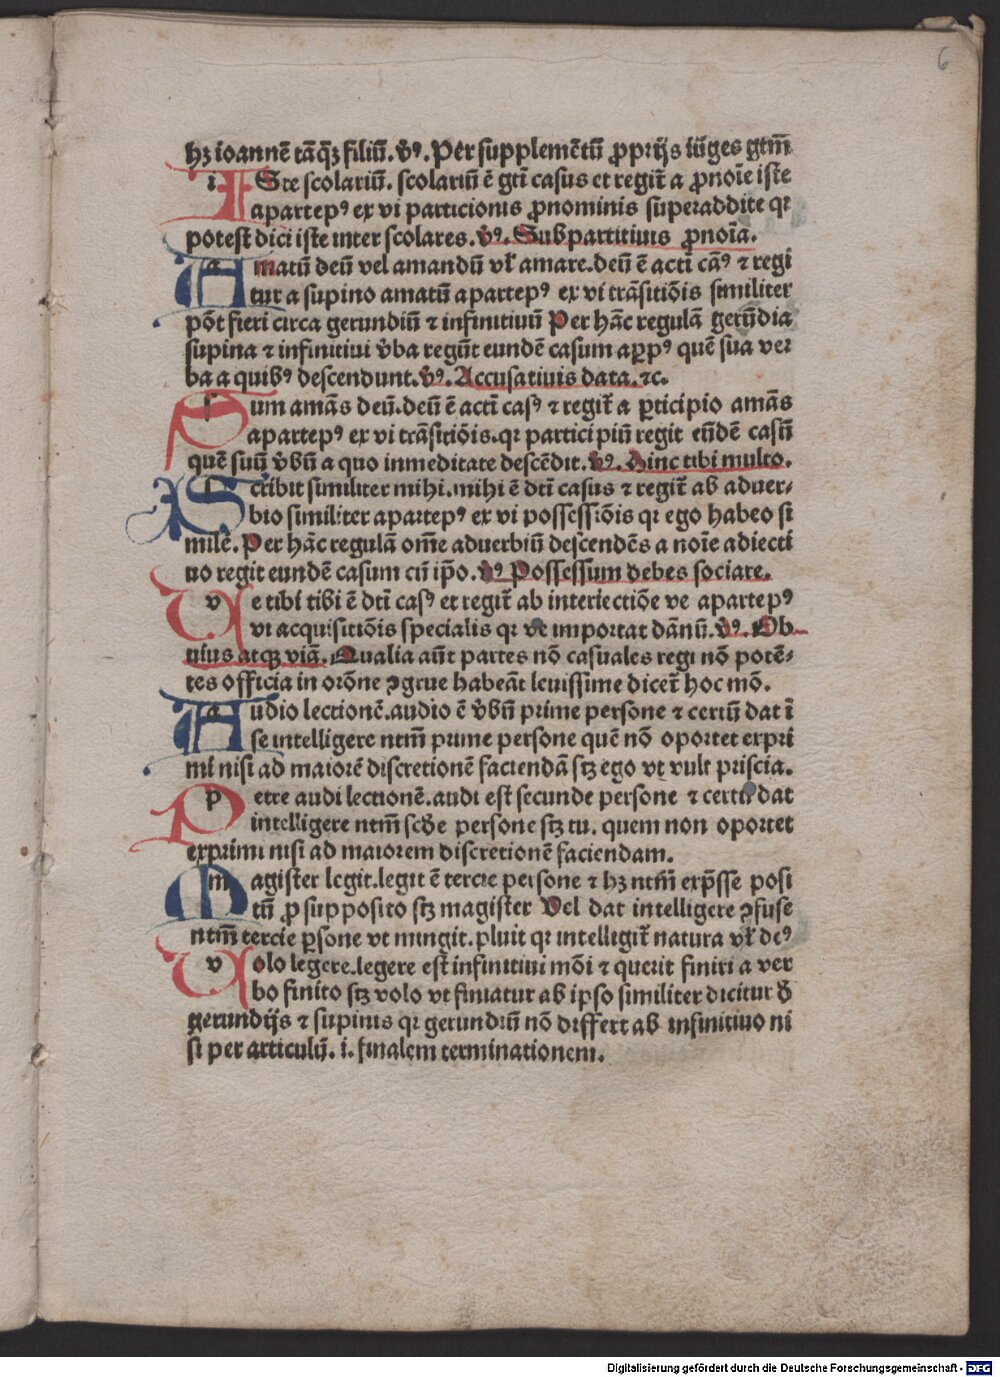 6
hꝫ ioannē tāq̄ꝫ filiū. v̄ꝰ. Per supplemētū ꝓprijs iūges gtm̄
ISte scolariū. scolariū ē gti casus et regit̄ a ꝓnoīe iste
aparte pꝰ ex vi particionis ꝓnominis superaddite qꝛ
potest dici iste inter scolares. v̄ꝰ. Subpartitiuis ꝓnoīa.
Amatū deū vel amandū vł amare. deū ē acti cāꝰ ⁊ regi
tur a supino amatū aparte pꝰ ex vi trāsitiōis similiter
pōt fieri circa gerundiū ⁊ infinitiuū Per hāc regulā gerūdia
supina ⁊ infinitiui v̄ba regūt eundē casum aꝑ pꝰ quē sua ver
ba a quibꝰ descendunt. v̄ꝰ. Accusatiuis data. ⁊c.
Sum amās deū. deū ē acti casꝰ ⁊ regit̄ a ꝑticipio amās
aparte pꝰ ex vi trāsitiōis. qꝛ participiū regit eūdē casū
quē suū v̄bū a quo inmeditate descēdit. v̄ꝰ. Hinc tibi multo.
Scribit similiter mihi. mihi ē dti casus ⁊ regit̄ ab aduer⸗
bio similiter aparte pꝰ ex vi possessiōis qꝛ ego habeo si
milē. Per hāc regulā om̄e aduerbiū descendēs a noīe adiecti
uo regit eundē casum cū ip̄o. v̄ꝰ Possessum debes sociare.
Ve tibi tibi ē dti casꝰ et regit̄ ab interiectiōe ve aparte pꝰ
vi acquisitiōis specialis qꝛ ve importat dānū. v̄ꝰ. Ob⸗
uius atqꝫ viā. Qualia aūt partes nō casuales regi nō potē⸗
tes officia in orōne ꝯgrue habeāt leuissime dicet̄ hoc mō.
Audio lectionē. audio ē v̄bū prime persone ⁊ certū dat ī
se intelligere ntm̄ prime persone quē nō oportet expri
mi nisi ad maiorē discretionē faciendā sꝫ ego vt vult priscia.
Petre audi lectionē. audi est secunde persone ⁊ certū dat
intelligere ntm̄ scd̄e persone sꝫ tu. quem non oportet
exprimi nisi ad maiorem discretionē faciendam.
Magister legit. legit ē tercie persone ⁊ hꝫ ntm̄ exp̄sse posi
tū ꝓ supposito sꝫ magister Vel dat intelligere ꝯfuse
ntm̄ tercie ꝑsone vt mingit. pluit qꝛ intelligit̄ natura vł deꝰ
Volo legere. legere est infinitiui mōi ⁊ querit finiri a ver
bo finito sꝫ volo vt finiatur ab ipso similiter dicitur d̄
gerundijs ⁊ supinis qꝛ gerundiū nō differt ab infinitiuo ni
si per articulū. i. finalem terminationem.
Digitalisierung gefördert durch die Deutsche Forschungsgemeinschaft - DFG